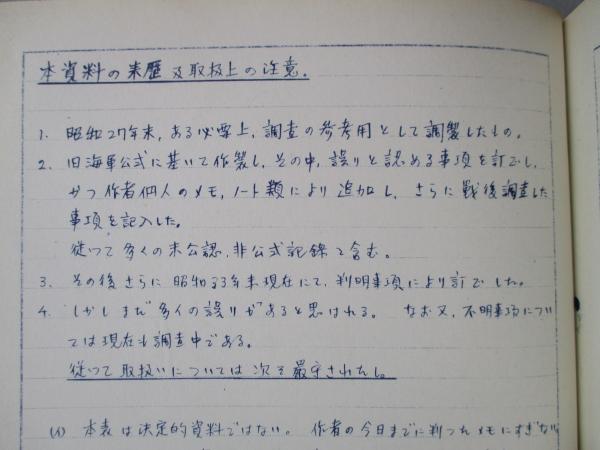 本資料の来歴及取扱上の注意.
1. 昭和27年末,ある必要上,調査の参考用として調製したもの。
2. 旧海軍公式に基いて作製し,その中,誤りと認める事項を訂正し,
かつ作者個人のメモ,ノート類により追加し,さらに戦後調査した
事項を記入した。
従つて多くの未公認,非公式記録を含む。
3. その後さらに昭和33年末現在にて,判明事項により訂正した。
4. しかしまだ多くの誤りがあると思はれる。 なお又,不明事項につい
ては現在も調査中である。
従つて取扱いについては次を厳守されたし。
(1) 本表は決定的資料ではない。 作者の今日までに判つたメモにすぎない